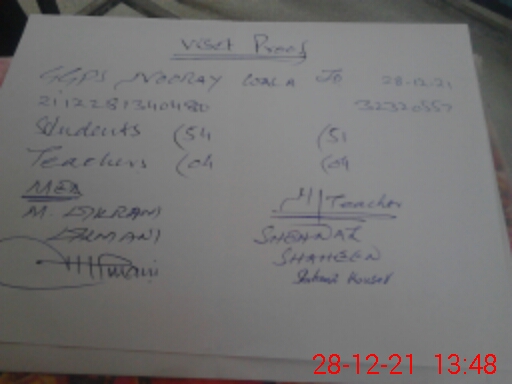 Viset Proof
GGPS NOORAY WALA JO 28-12-21
211228134048D 32320557
Students (54 (51
Teachers (04 (04
MEA H/Teacher
M. IKRAM SHEHNAZ
IRMANI SHAHEEN
Shabana Kousar
28-12-21 13:48